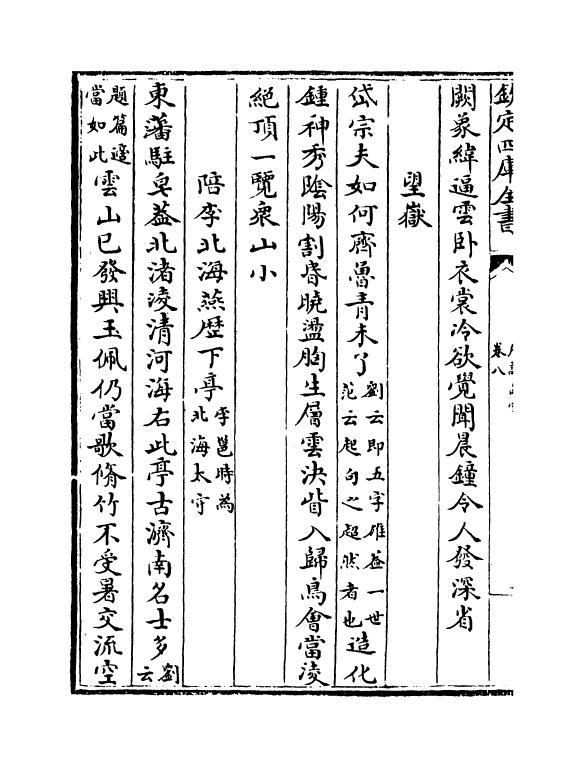 欽定四庫全書
卷八
闕象緯逼雲卧衣裳冷欲覺聞晨鐘令人發深省
望嶽
岱宗夫如何齊魯青未了劉云即五字雄蓋一世范云起句之超然者也造化
鍾神秀隂陽割昏曉盪胸生層雲決眥入歸鳥會當凌
絶頂一覽衆山小
陪李北海燕歴下亭李邕時為北海太守
東藩駐皂葢北渚淩清河海右此亭古濟南名士多劉云
題篇邊當如此雲山已發興玉佩仍當歌脩竹不受暑交流空